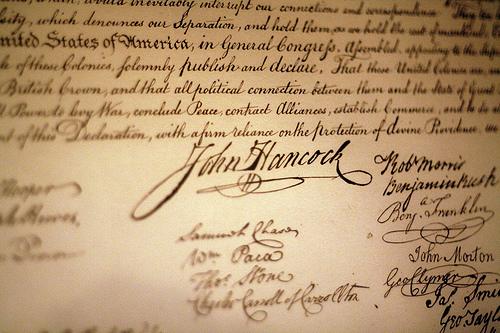 would inevitably interrupt our connections and correspondence. They
which denounces our Separation, and hold them, as we hold the rest of mankind,
nited States of America, in General Congress, Assembled, appealing to the
of these Colonies, solemnly publish and declare, That these United Colonies are,
British Crown, and that all political connection between them and the State of Great
Power to levy War, conclude Peace, contract Alliances, establish Commerce, and to do
of this Declaration, with a firm reliance on the Protection of divine Providence, we
John Hancock
Hooper
Hewes,
Penn
Samuel Chase
Wm Paca
Thos Stone
Charles Carroll of Carrollton
Robt Morris
Benjamin Rush
Benja Franklin
John Morton
Geo Clymer
Jas Smi
Geo. Tayl